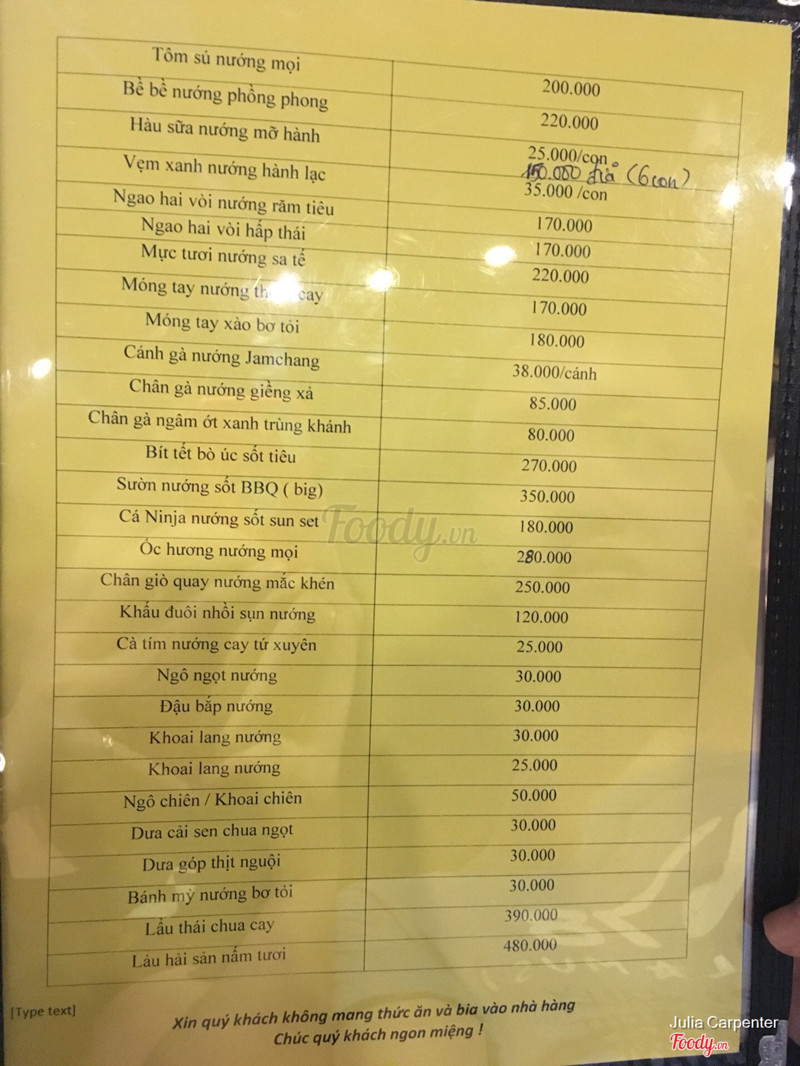 Tôm sú nướng mọi 200.000
Bề bề nướng phồng phong 220.000
Hàu sữa nướng mỡ hành 25.000/con
150.000 đĩa (6con)
Vẹm xanh nướng hành lạc 35.000 /con
Ngao hai vòi nướng răm tiêu 170.000
Ngao hai vòi hấp thái 170.000
Mực tươi nướng sa tế 220.000
Móng tay nướng cay 170.000
Móng tay xào bơ tỏi 180.000
Cánh gà nướng Jamchang 38.000/cánh
Chân gà nướng giềng xả 85.000
Chân gà ngâm ớt xanh trùng khánh 80.000
Bít tết bò úc sốt tiêu 270.000
Sườn nướng sốt BBQ ( big) 350.000
Cá Ninja nướng sốt sun set 180.000
Ốc hương nướng mọi 280.000
Chân giò quay nướng mắc khén 250.000
Khấu đuôi nhồi sụn nướng 120.000
Cà tím nướng cay tứ xuyên 25.000
Ngô ngọt nướng 30.000
Đậu bắp nướng 30.000
Khoai lang nướng 30.000
Khoai lang nướng 25.000
Ngô chiên / Khoai chiên 50.000
Dưa cải sen chua ngọt 30.000
Dưa góp thịt nguội 30.000
Bánh mỳ nướng bơ tỏi 30.000
Lẩu thái chua cay 390.000
Lẩu hải sản nấm tươi 480.000
[Type text]
Xin quý khách không mang thức ăn và bia vào nhà hàng
Chúc quý khách ngon miệng !
Foody.vn
Julia Carpenter
Foody.vn